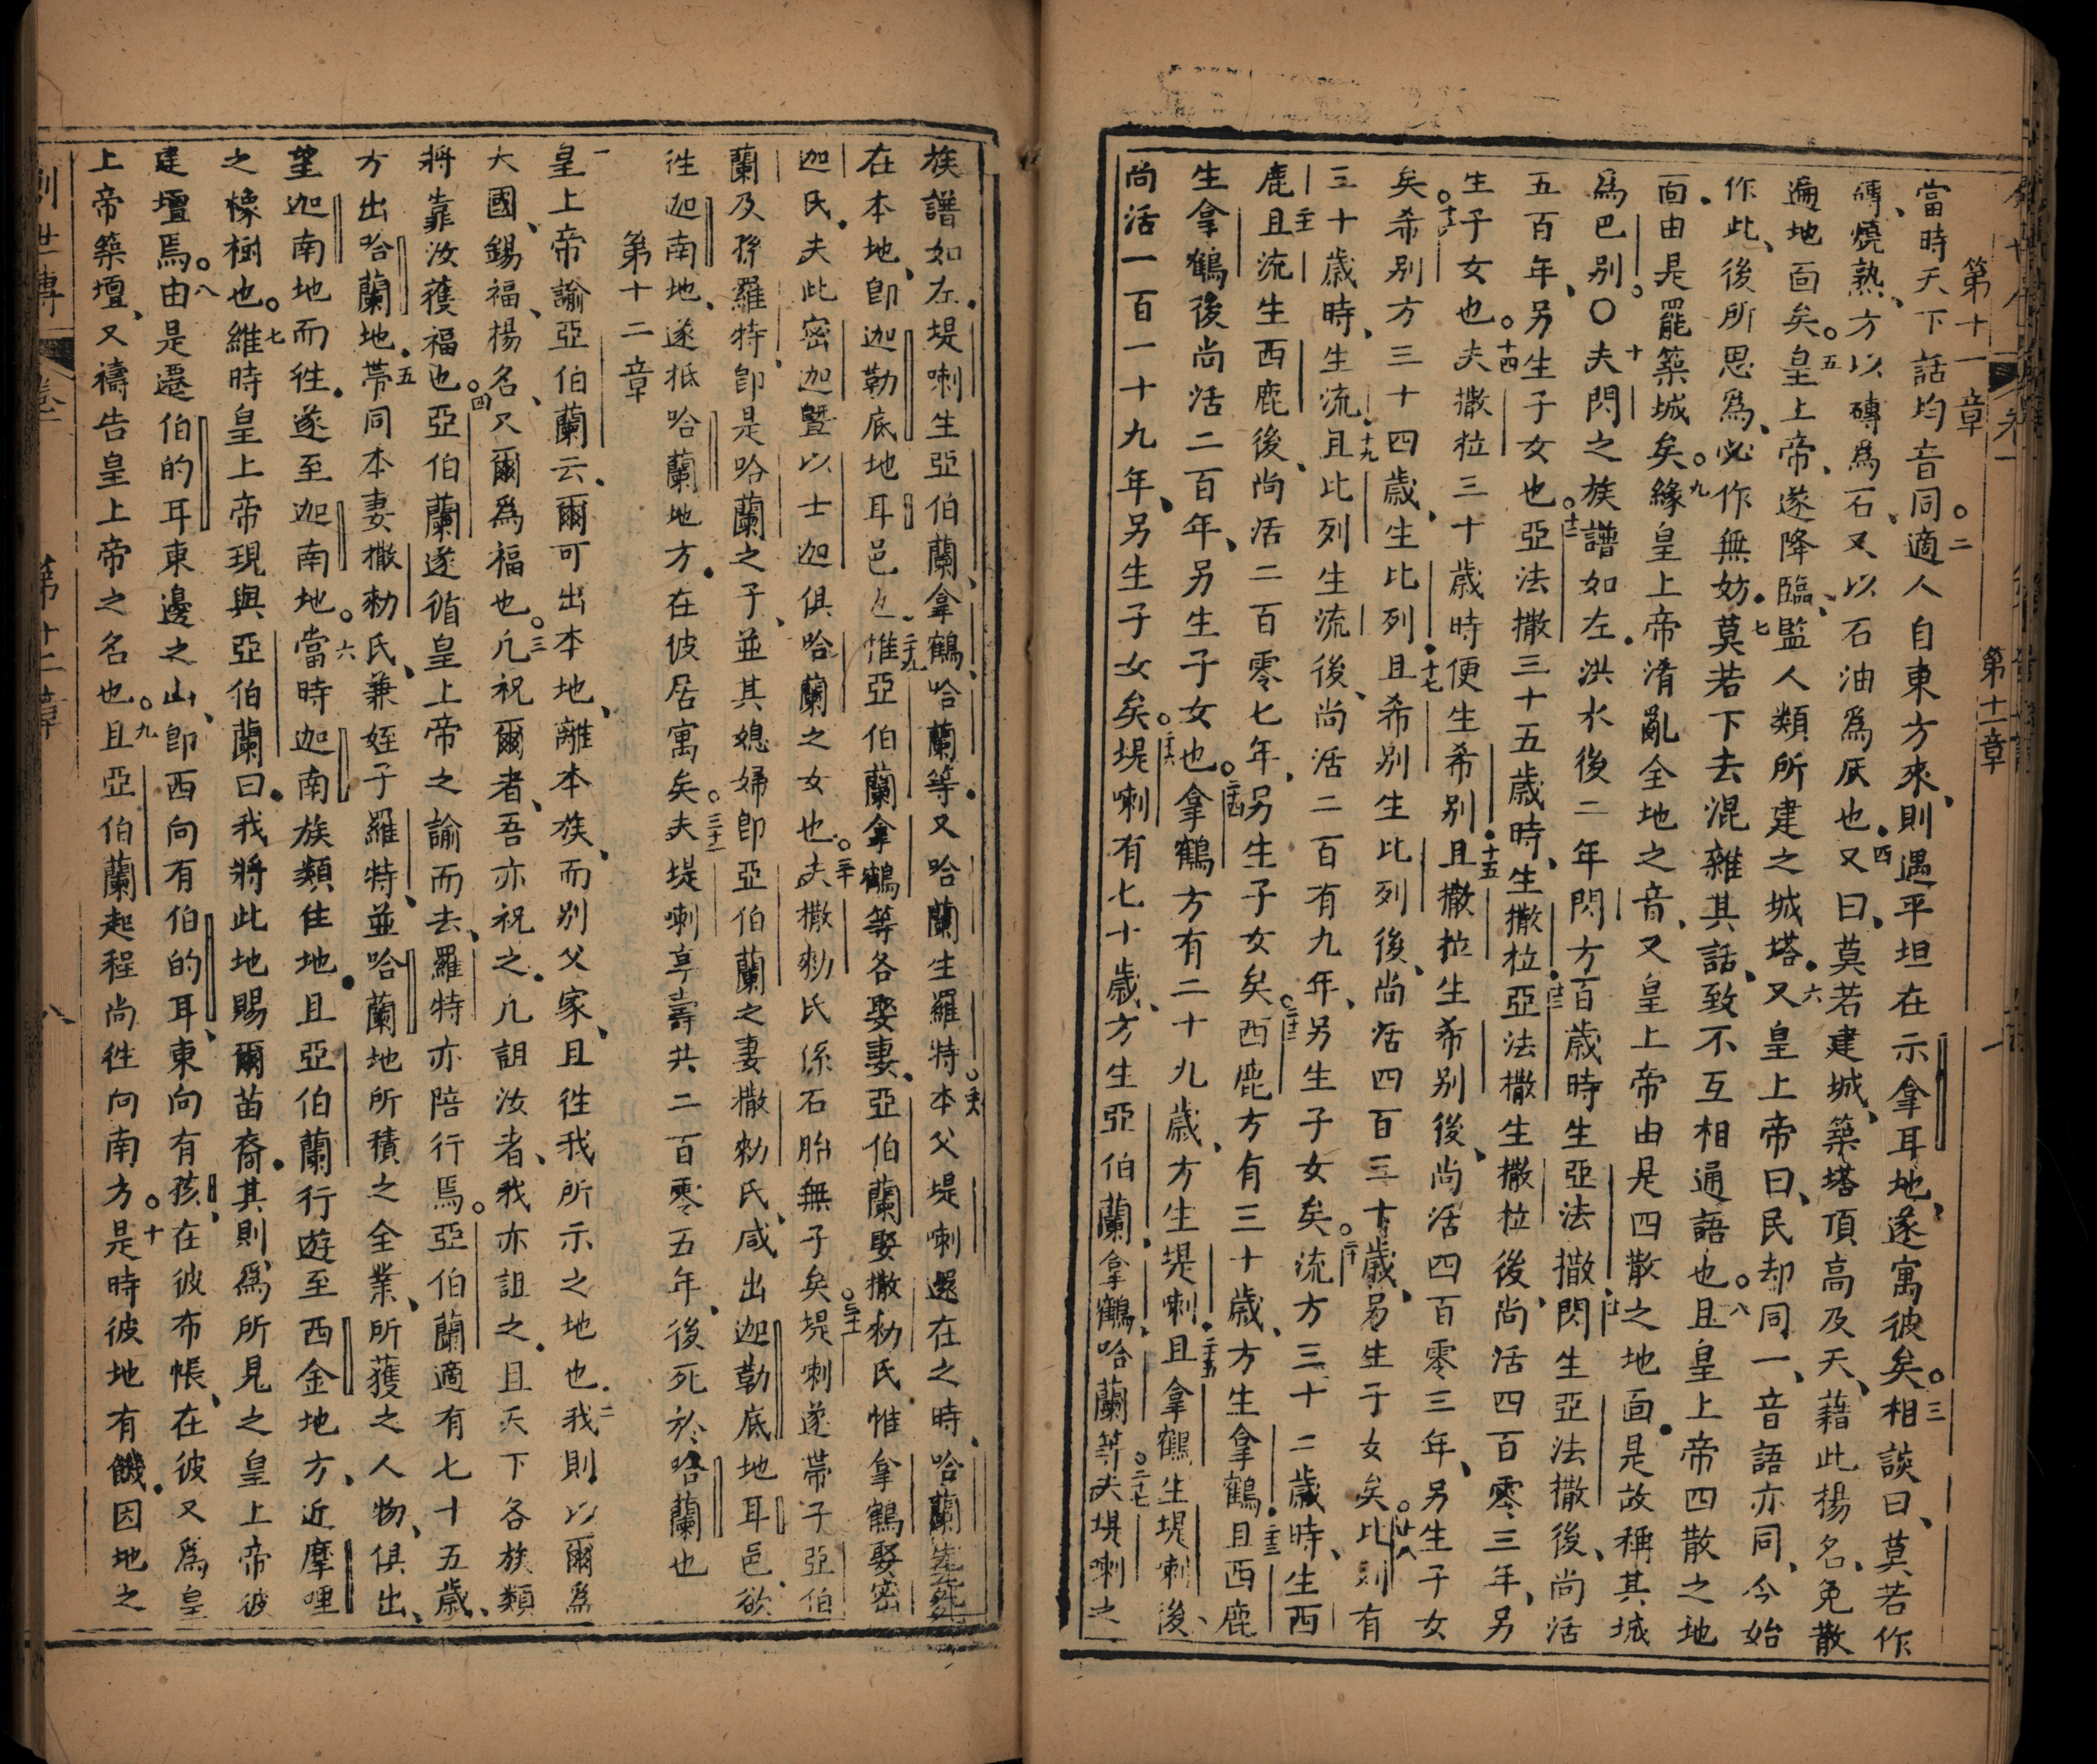 第十一章
當時天下話均音同。二適人自東方來、則遇平坦在示拿耳地、遂寓彼矣。三相談曰、莫若作
磚、燒熟、方以磚為石、又以石油為灰也。四又曰、莫若建城、築塔頂高及天、藉此揚名、免散
遍地面矣。五皇上帝、遂降臨、監人類所建之城塔。六又皇上帝曰、民却同一、音語亦同、今始
作此、後所思為、必作無妨。七莫若下去混雜其話、致不互相通語也。八且皇上帝四散之地
面由是罷築城矣。九緣皇上帝淆亂全地之音、又皇上帝由是四散之地面。是故稱其城
為巴別。〇十夫閃之族譜如左。洪水後二年閃方百歲時生亞法撒十一閃生亞法撒後、尚活
五百年、另生子女也。十二亞法撒三十五歲時、生撒拉。十三亞法撒生撒拉後、尚活四百零三年、另
生子女也。十四夫撒拉三十歲時便生希別。十五且撒拉生希別後、尚活四百零三年、另生子女
矣。十六希別方三十四歲、生比列。十七且希別生比列後、尚活四百三十歲、另生子女矣。十八比列有
三十歲時、生流。十九且比列生流後、尚活二百有九年、另生子女矣。二十流方三十二歲時、生西
鹿二十一且流生西鹿後、尚活二百零七年、另生子女矣。二十二西鹿方有三十歲、方生拿鶴。二十三且西鹿
生拿鶴後尚活二百年、另生子女也。二十四拿鶴方有二十九歲、方生堤喇。二十五且拿鶴生堤喇後、
尚活一百一十九年、另生子女矣。二十六堤喇有七十歲、方生亞伯蘭、拿鶴、哈蘭等。二十七夫堤喇之
族譜如左。堤喇生亞伯蘭、拿鶴、哈蘭等。又哈蘭生羅特。二十八本父堤喇還在之時、哈蘭先死
在本地、即迦勒底地耳邑也。二十九惟亞伯蘭拿鶴等各娶妻、亞伯蘭娶撒勑氏、惟拿鶴娶密
迦氏。夫此密迦暨以士迦俱哈蘭之女也。三十夫撒勑氏係石胎無子矣。三十一堤喇遂帶子亞伯
蘭及孫羅特、即是哈蘭之子、並其媳婦即亞伯蘭之妻撒勑氏、咸出迦勒底地耳邑、欲
徃迦南地、遂抵哈蘭地方。在彼居寓矣。三十二夫堤喇享壽共二百零五年、後死於哈蘭也
第十二章
一皇上帝諭亞伯蘭云、爾可出本地、離本族、而別父家、且徃我所示之地也。二我則以爾為
大國、錫福、揚名、又爾為福也。三凡祝爾者、吾亦祝之。凡詛汝者、我亦詛之。且天下各族類
將靠汝獲福也。四亞伯蘭遂循皇上帝之諭而去、羅特亦陪行焉。亞伯蘭適有七十五歲、
方出哈蘭地。五帶同本妻撒勑氏、兼姪子羅特、並哈蘭地所積之全業、所獲之人物、俱出、
望迦南地而徃。遂至迦南地。六當時迦南族類住地。且亞伯蘭行遊至西金地方、近摩哩
之橡樹也。七維時皇上帝現與亞伯蘭曰、我將此地賜爾苗裔。其則為所見之皇上帝彼
建壇焉。八由是遷伯的耳東邊之山、即西向有伯的耳、東向有孩、在彼布帳、在彼又為皇
上帝築壇、又禱告皇上帝之名也。九且亞伯蘭起程尚徃向南方。十是時彼地有饑。因地之
創世傳 卷一 第十二章 八